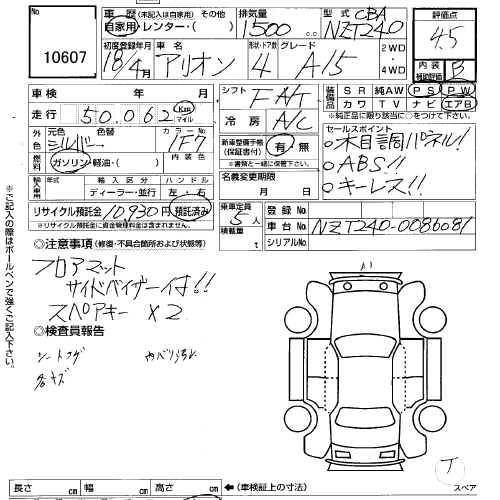 No.
10607
車歴 (未記入は自家用) その他
自家用・レンター・( )
排気量
1500 cc
型式
CBA
NZT240
評価点
4.5
内装
補助評価
B
初度登録年月
18/4月
車名
アリオン
形状・ドア数
4
グレード
A15
2WD
4WD
車検 年 月
走行 50.062 Km マイル
シフト
FAT
冷房
A/C
装備品
SR 純AW PS PW
カワ TV ナビ エアB
※純正品に限り左表に○をつけて下さい。
外色
元色 色替
シルバー
カラーNo
1F7
内装色
燃料
ガソリン・軽油・( )
新車整備手帳
(保証書付)
有・無
※書類と一緒に保管下さい。
セールスポイント
○木目調パネル!
○ABS!!
○キーレス!!
輸入車
年式 輸入区分 ハンドル
ディーラー・並行 左・右
名義変更期限
月 日
リサイクル預託金 10,930円 預託済み
※リサイクル預託金に資金管理料金は含まれません。
乗車定員
5人
積載量
t
登録No
車台No NZT240-0086081
シリアルNo
※ご記入の際はボールペンで強くご記入下さい。
◎注意事項(修復・不具合箇所および状態等)
フロアマット
サイドバイザー付!!
スペアキー X2
◎検査員報告
シートコゲ
各キズ
長さ cm 幅 cm 高さ cm ←(車検証上の寸法)
スペア